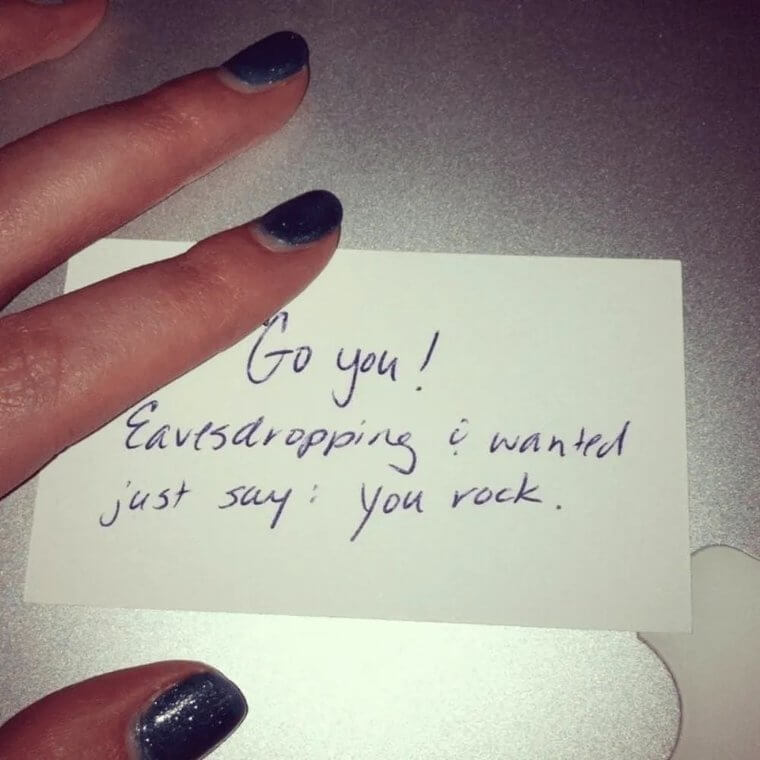 Go you!
Eavesdropping & wanted
just say: you rock.